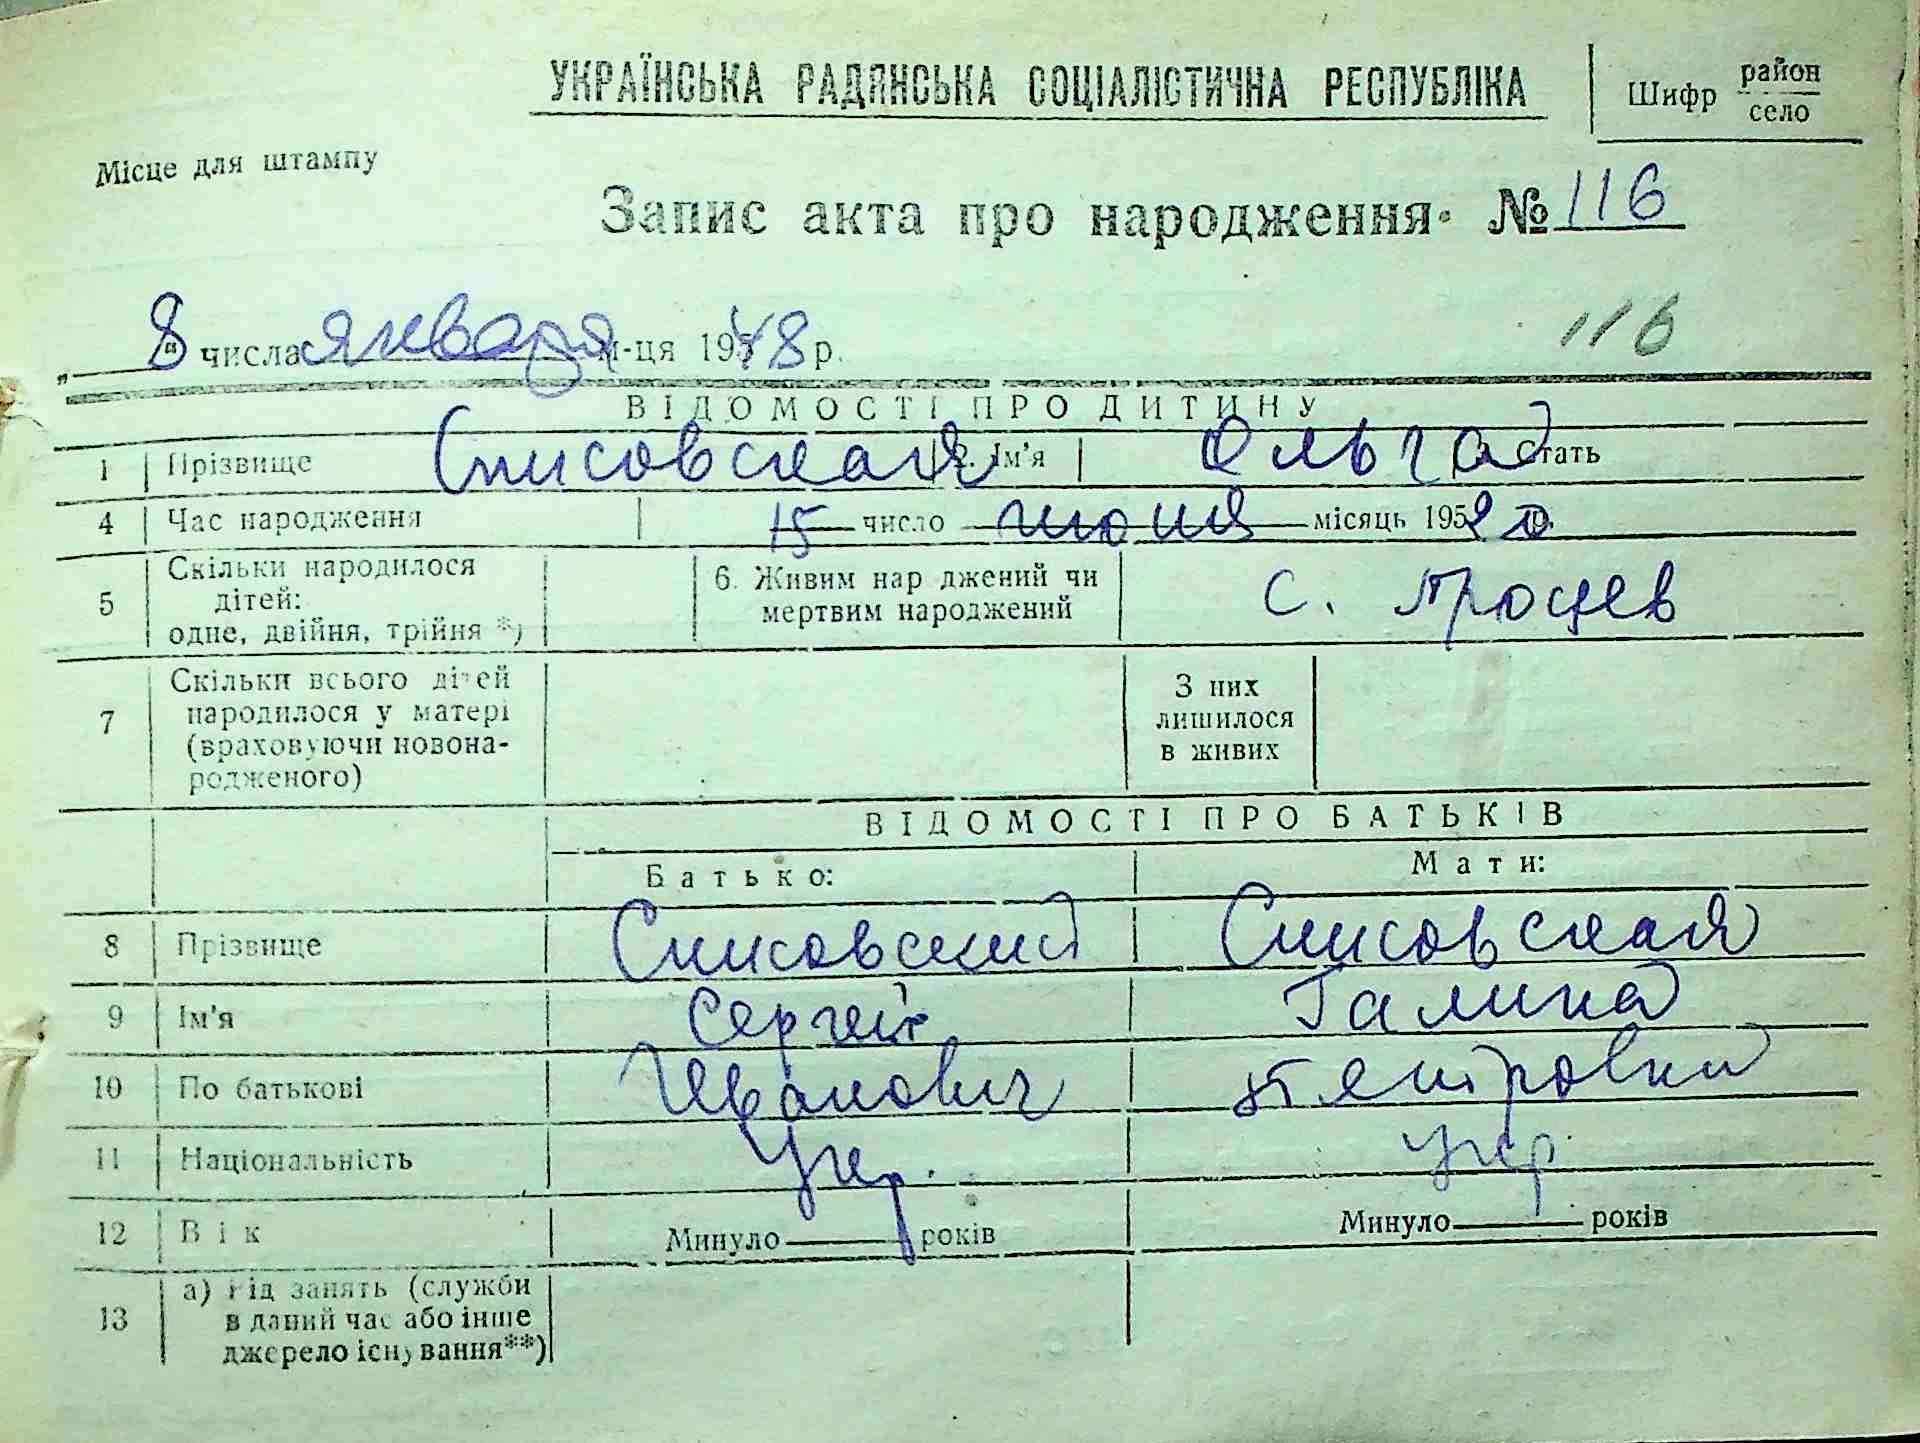 УКРАЇНСЬКА РАДЯНСЬКА СОЦІАЛІСТИЧНА РЕСПУБЛІКА
Шифр район
село
Місце для штампу
Запис акта про народження № 116
„ 8 " числа января м-ця 1948 р.
116
ВІДОМОСТІ ПРО ДИТИНУ
1 Прізвище Списовская 2. Ім'я Ольга Стать
4 Час народження 15 число июня місяць 195
5 Скільки народилося дітей: одне, двійня, трійня *) 6. Живим нар дженийчи мертвим народжений с. Процев
7 Скільки всього дітей народилося у матері (враховуючи новонародженого) З них лишилося в живих
ВІДОМОСТІ ПРО БАТЬКІВ
Батько: Мати:
8 Прізвище Списовский Списовская
9 Ім'я Сергей Галина
10 По батькові Иванович
11 Національність Укр. укр.
12 Вік Минуло років Минуло років
13 а) Рід занять (служби в даний час або інше джерело існування**)